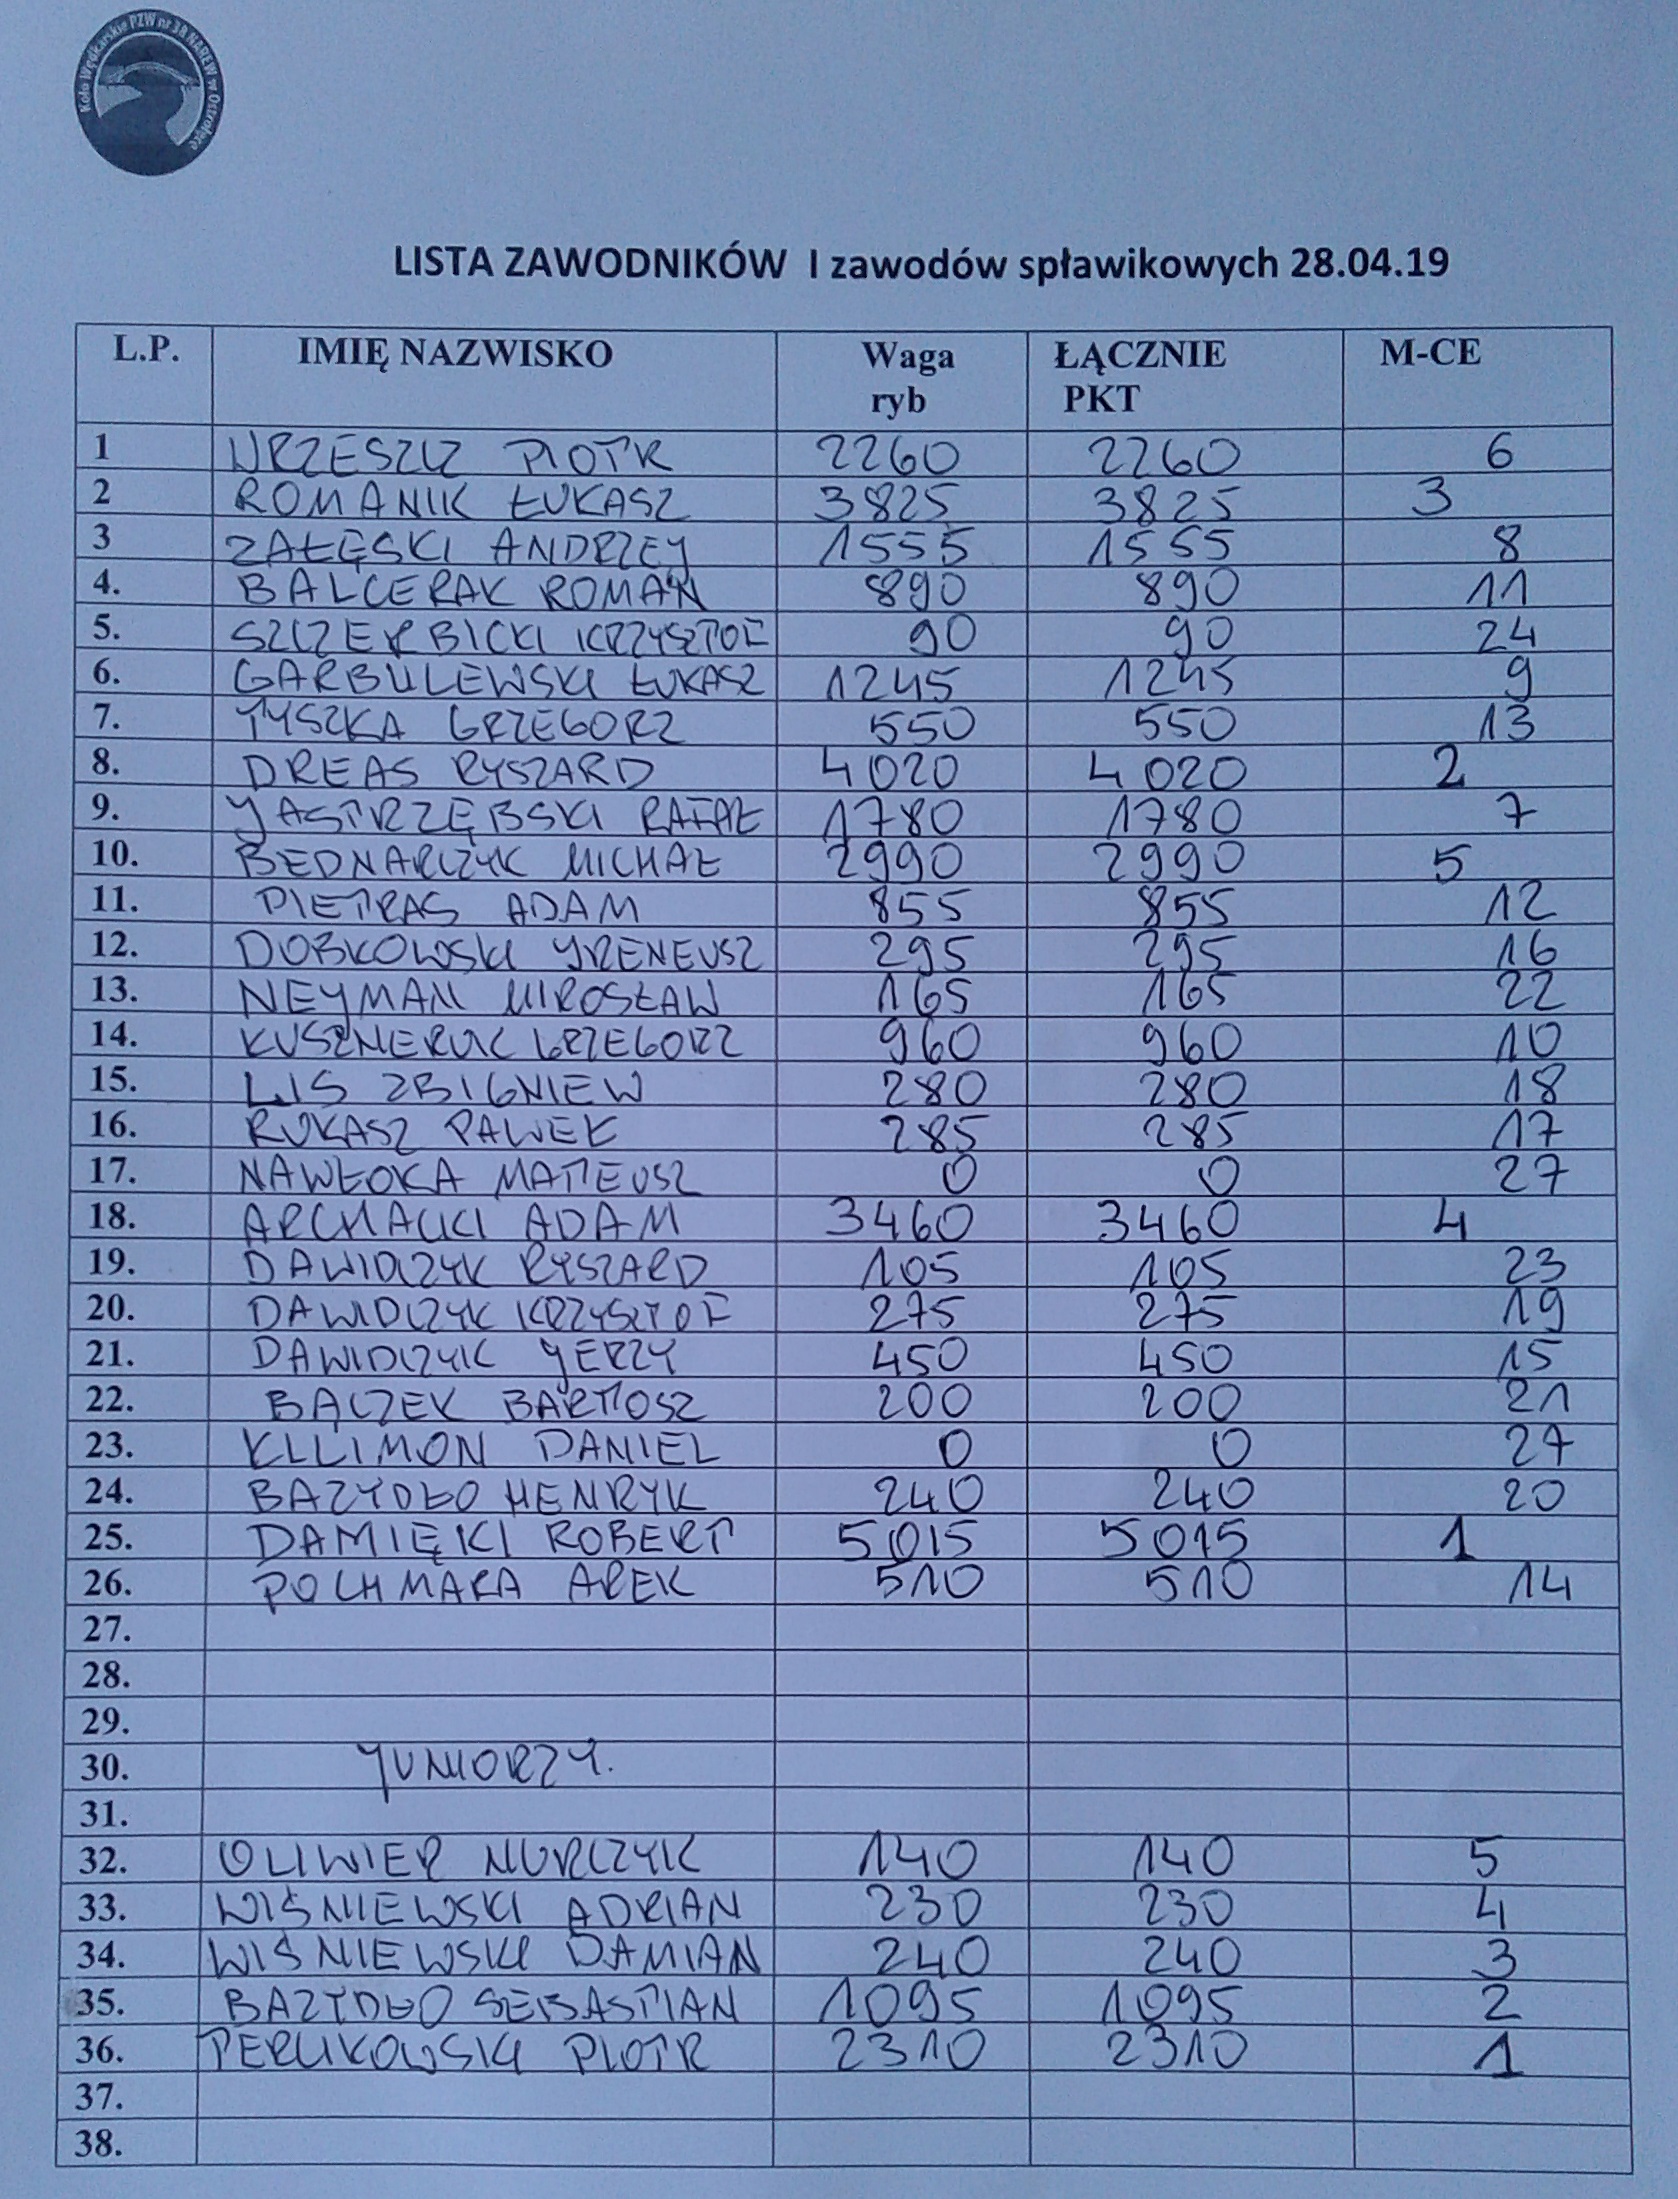 Koło Wędkarskie PZW nr 38 NAREW w Ostrołęce
LISTA ZAWODNIKÓW I zawodów spławikowych 28.04.19
L.P. IMIĘ NAZWISKO Waga ryb ŁĄCZNIE PKT M-CE
1 WRZESZCZ PIOTR 2260 2260 6
2 ROMANIK ŁUKASZ 3825 3825 3
3 ZAŁĘSKI ANDRZEJ 1555 1555 8
4. BALCERAK ROMAN 890 890 11
5. SZCZERBICKI KRZYSZTOF 90 90 24
6. GARBULEWSKI ŁUKASZ 1245 1245 9
7. TYSZKA GRZEGORZ 550 550 13
8. DREAS RYSZARD 4020 4020 2
9. JASTRZĘBSKI RAFAŁ 1780 1780 7
10. BEDNARCZYK MICHAŁ 2990 2990 5
11. PIETRAS ADAM 855 855 12
12. DOBKOWSKI IRENEUSZ 295 295 16
13. NEYMAN MIROSŁAW 165 165 22
14. KUSZNERUK GRZEGORZ 960 960 10
15. LIS ZBIGNIEW 280 280 18
16. RUKASZ PAWEŁ 285 285 17
17. NAWŁOKA MATEUSZ 0 0 27
18. ARCHACKI ADAM 3460 3460 4
19. DAWIDCZYK RYSZARD 105 105 23
20. DAWIDCZYK KRZYSZTOF 275 275 19
21. DAWIDCZYK JERZY 450 450 15
22. BĄCZEK BARTOSZ 200 200 21
23. DANIEL 0 0 27
24. BAZYDŁO HENRYK 240 240 20
25. DAMIĘCKI ROBERT 5015 5015 1
26. POCHMARA AREK 510 510 14
27.
28.
29.
30. JUNIORZY.
31.
32. OLIWIER NURCZYK 140 140 5
33. WIŚNIEWSKI ADRIAN 230 230 4
34. WIŚNIEWSKI DAMIAN 240 240 3
35. BAZYDŁO SEBASTIAN 1095 1095 2
36. PERLIKOWSKI PIOTR 2310 2310 1
37.
38.